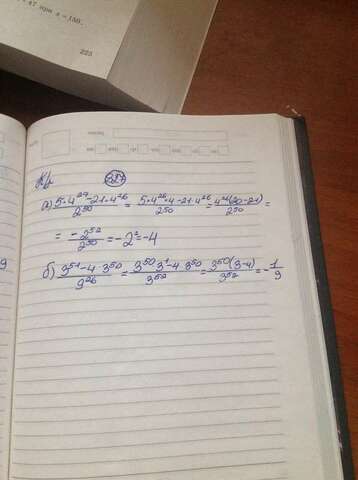 47 при x = 150.
223
К/р
а) (5·4²⁷-21·4²⁶)/2⁵⁰ = (5·4²⁶·4-21·4²⁶)/2⁵⁰ = 4²⁶(20-21)/2⁵⁰ =
= -2⁵²/2⁵⁰ = -2² = -4
б) (3⁵¹-4·3⁵⁰)/9²⁶ = (3⁵⁰3¹-4·3⁵⁰)/3⁵² = 3⁵⁰(3-4)/3⁵² = -1/9
9